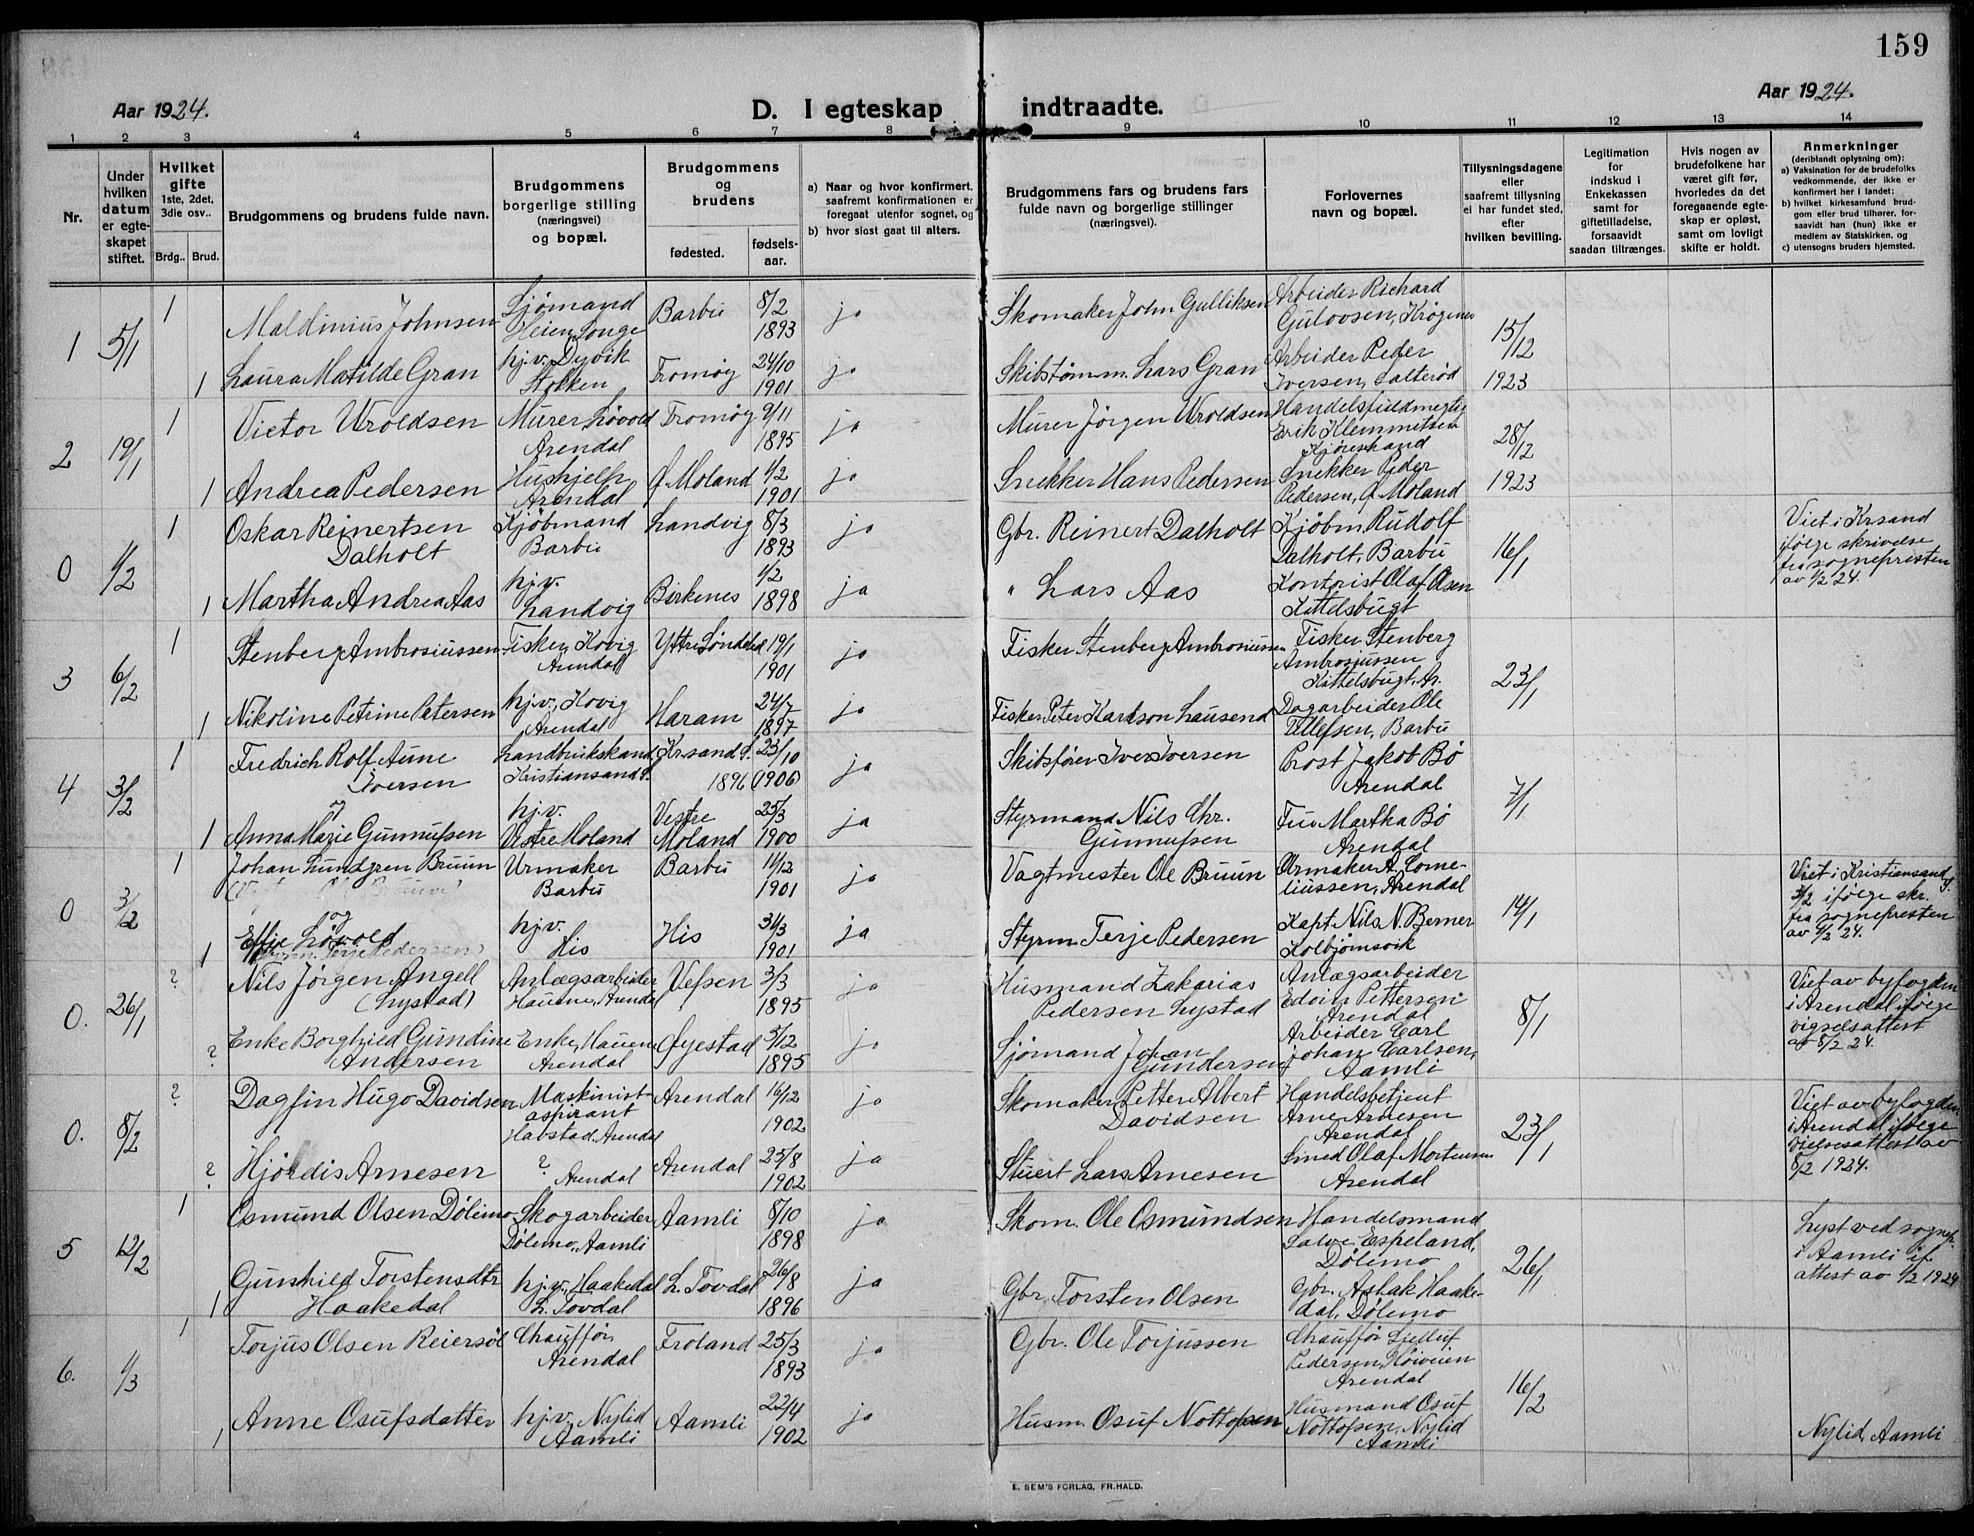 159
Aar 1924.
D. I egteskap indtraadte.
Aar 1924.
1 2 3 4 5 6 7 8 9 10 11 12 13 14
Nr.
Under hvilken datum er egteskapet stiftet.
Hvilket gifte 1ste, 2det, 3die osv..
Brdg.. Brud.
Brudgommens og brudens fulde navn.
Brudgommens borgerlige stilling (næringsvei) og bopæl.
Brudgommens og brudens
fødested.
fødsels-aar.
a) Naar og hvor konfirmert, saafremt konfirmationen er foregaat utenfor sognet, og
b) hvor sidst gaat til alters.
Brudgommens fars og brudens fars fulde navn og borgerlige stillinger (næringsvei).
Forlovernes navn og bopæl.
Tillysningsdagene eller saafremt tillysning ei har fundet sted, efter hvilken bevilling.
Legitimation for indskud i Enkekassen samt for giftetilladelse, forsaavidt saadan tiltrænges.
Hvis nogen av brudefolkene har været gift før, hvorledes da det foregaaende egteskap er opløst, samt om lovligt skifte er holdt.
Anmerkninger (deriblandt oplysning om):
a) Vaksination for de brudefolks vedkommende, der ikke er konfirmert her i landet;
b) hvilket kirkesamfund brudgom eller brud tilhører, forsaavidt han (hun) ikke er medlem av Statskirken, og
c) utensogns bruders hjemsted.
1 5/1 1 Maldinius Johnsen Sjømand Heien, Songe Barbu 8/2 1893 ja Skomaker John Gulliksen Arbeider Richard Gulovsen, Krøgenes 15/12 1923
1 Laura Matilde Gran hj.v. Dyvik Stokken Tromøy 24/10 1901 ja Skibstømm. Lars Gran Arbeider Peder Iversen, Salterød
2 19/1 1 Victor Uroldsen Murer Løvold Arendal Tromøy 9/11 1895 ja Murer Jørgen Uroldsen Handelsfuldmegtig Erik Klemmetsen 28/12 1923
1 Andrea Pedersen Hushjelp Arendal Ø. Moland 1/2 1901 ja Snekker Hans Pedersen Snekker Peder Pedersen, Ø. Moland
0 1/2 1 Oskar Reinertsen Dalholt Kjøbmand Barbu Landvig 8/3 1893 ja Gbr. Reinert Dalholt Kjøbm. Rudolf Dalholt, Barbu 16/1 Viet i Krsand ifølge skrivelse fra sognepresten av 1/2 24.
1 Martha Andrea Aas hj.v. Landvig Birkenes 1/2 1898 ja " Lars Aas Kontorist Olaf Olsen Kittelsbugt
3 6/2 1 Stenberg Ambrosiussen Fisker, Kovig Arendal Yttre Søndeled 19/1 1901 ja Fisker Stenberg Ambrosiussen Fisker Stenberg Ambrosiussen Kittelsbugt, Ar. 23/1
1 Nikoline Petrine Petersen hj.v., Kovig Arendal Haram 24/7 1897 ja Fisker Peter Karlson Lausend Dagarbeider Ole Tellefsen, Barbu
4 3/2 1 Fredrich Rolf Aune Iversen Landbrukskand. Kristiansand S. Krsand S. 23/10 1896 (1906) ja Skibsfører Iver Iversen Prost Jakob Bø Arendal 7/1
og
1 Anna Marie Gunnufsen hj.v. Vestre Moland Vestre Moland 25/3 1900 ja Styrmand Nils Chr. Gunnufsen Fru Martha Bø Arendal
0 3/2 1 Johan Lundgren Bruun Urmaker Barbu Barbu 11/12 1901 ja Vagtmester Ole Bruun Urmaker A. Corneliussen, Arendal 14/1 Viet i Kristiansand S. 3/2 ifølge skr. fra sognepresten av 4/2 24.
og
1 Effie Løvold hj.v. His His 31/3 1901 ja Styrm. Terje Pedersen Kapt. Nils N. Berner Kolbjørnsvik
0. 26/1 ? Nils Jørgen Angell (Lystad) Anlægsarbeider Hauene, Arendal Vefsen 3/3 1895 ja Husmand Zakarias Pedersen Lystad Anlægsarbeider Edvin Pettersen Arendal 8/1 Viet av byfogden i Arendal ifølge vigselsattest av 8/2 24.
? Enke Borghild Gundine Andersen Enke, Hauene Arendal Øyestad 5/12 1895 ja Sjømand Johan Gundersen Arbeider Carl Johan Carlsen, Aamli
0. 8/2 ? Dagfin Hugo Davidsen Maskinist-aspirant Havstad, Arendal Arendal 16/12 1902 ja Skomaker Petter Albert Davidsen Handelsbetjent Arne Arnesen Arendal 23/1 Viet av byfogden i Arendal ifølge vielsesattest av 8/2 1924.
? Hjørdis Arnesen ? Arendal Arendal 25/8 1902 ja Stuert Lars Arnesen Smed Olaf Mortensen Arendal
5 12/2 1 Osmund Olsen Dølemo Skogarbeider Dølemo, Aamli Aamli 8/10 1898 ja Skom. Ole Osmundsen Handelsmand Salve Espeland, Dølemo 26/1 Lyst ved sognepr. i Aamli if. attest av 1/2 1924
1 Gunhild Torstensdtr. Haakedal hj.v., Haakedal L. Tovdal L. Tovdal 26/8 1896 ja Gbr. Torsten Olsen Gbr. Aslak Haakedal, Dølemo
6. 1/3 1 Torjus Olsen Reiersøl Chauffør, Arendal Froland 25/3 1893 ja Gbr. Ole Torjussen Chauffør Pedersen, Arendal 16/2
1 Anne Osufsdatter hj.v. Nylid Aamli Aamli 22/4 1902 ja Husm. Osuf Nottofsen Husmand Osuf Nottofsen, Nylid Aamli Nylid, Aamli
E. SEM'S FORLAG, FR.HALD.